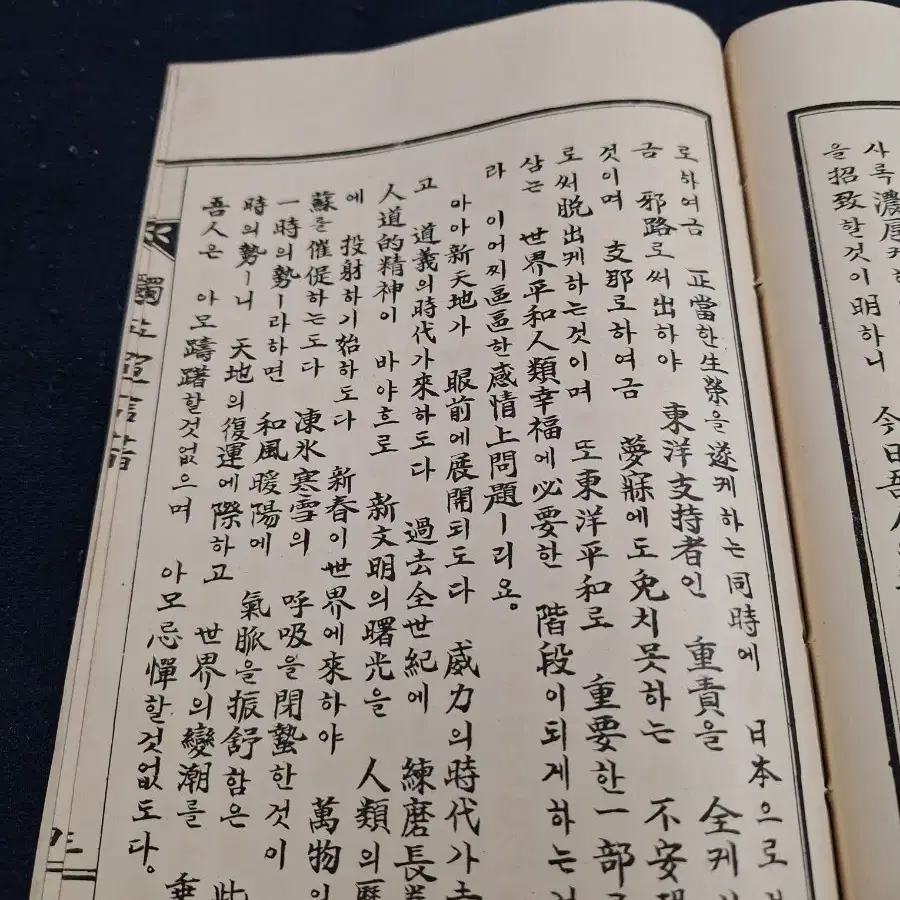 사록 濃厚케
을 招致할것이 明하니 今日吾人
로하여금 正當한生榮을遂케하는同時에 日本으로
금 邪路로써出하야 東洋支持者인 重責을 全케
것이며 支耶로하여금 夢寐에도免치못하는 不安
로써脱出케하는것이며 또東洋平和로 重要한一部
삼는 世界平和人類幸福에必要한 階段이되게하는
라 이어찌區區한感情上問題ㅣ리요。
아아新天地가 眼前에展開되도다 威力의時代가去
고 道義의時代가來하도다 過去全世紀에 練磨長
人道的精神이 바야흐로 新文明의曙光을 人類의歷
에 投射하기始하도다 新春이世界에來하야 萬物의
蘇를催促하는도다 凍氷寒雪의 呼吸을閉蟄한것이
一時의勢ㅣ라하면 和風暖陽에 氣脈을振舒함은 此
時의勢ㅣ니 天地의復運에際하고 世界의變潮를
吾人은 아모躊躇할것없으며 아모忌憚할것없도다。
獨立宣言書